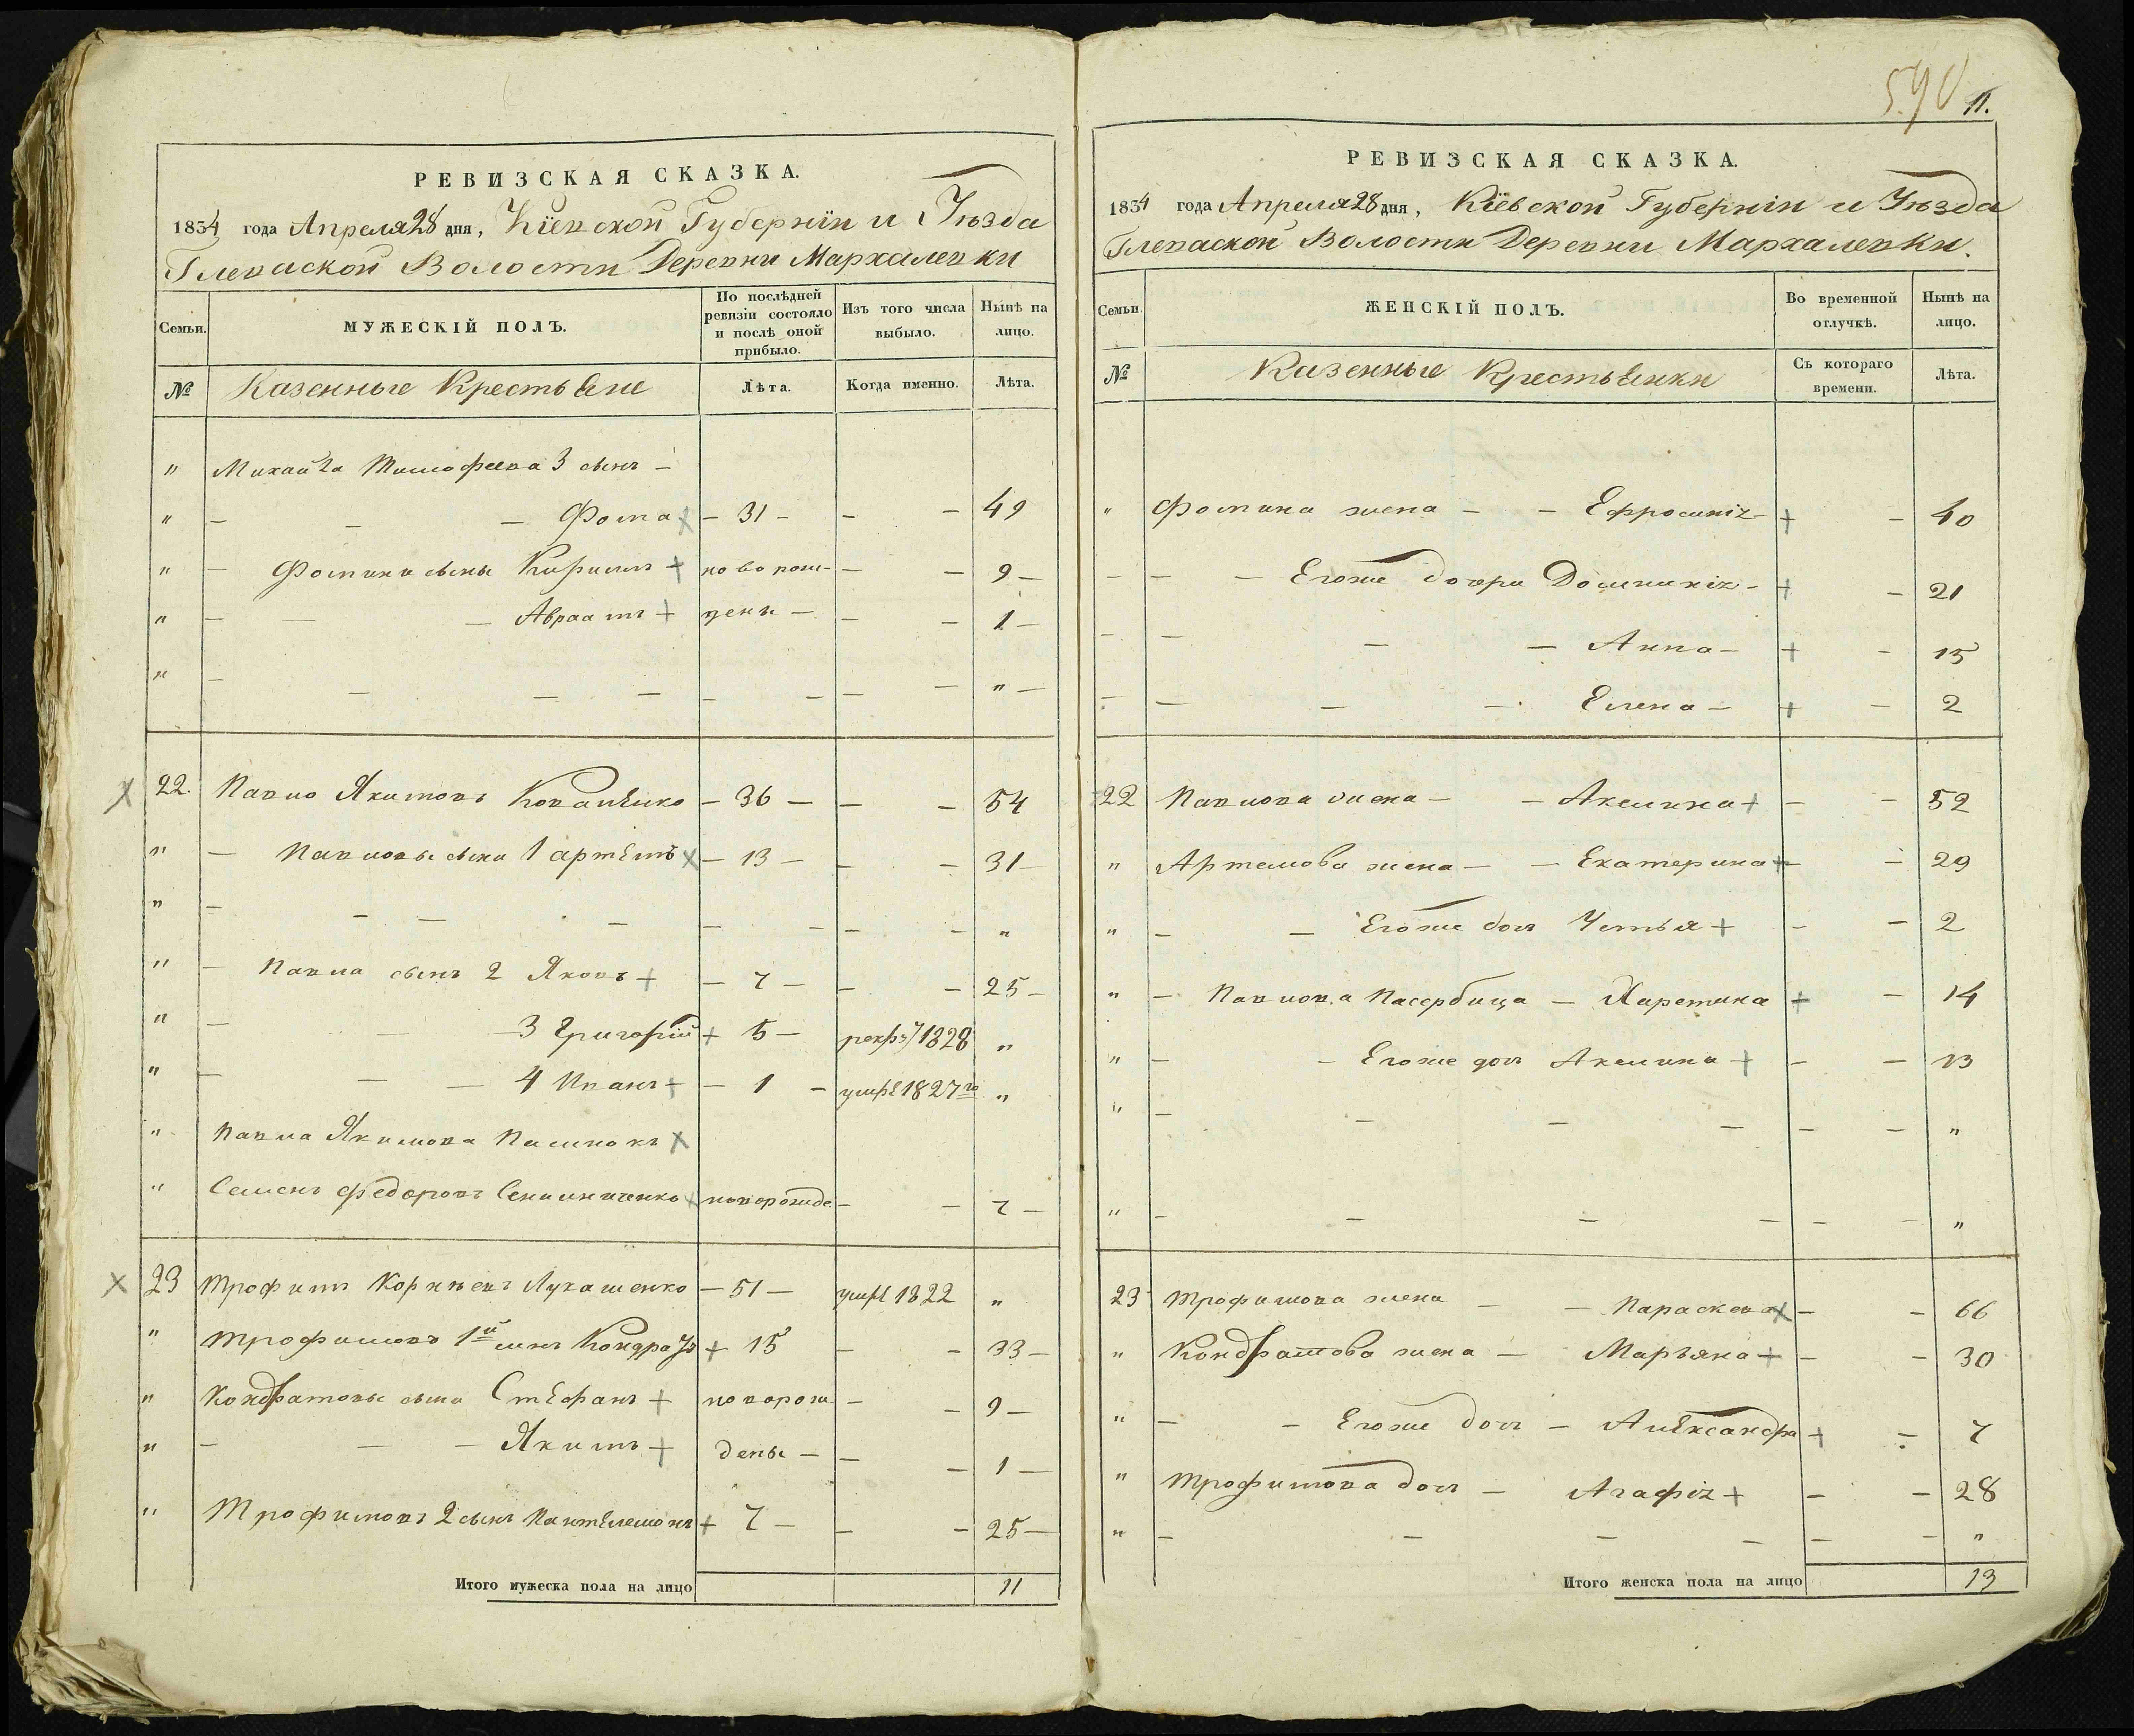 590
11.
РЕВИЗСКАЯ СКАЗКА.
1834 года Апреля 28 дня, Кіевской Губерніи и Уѣзда
Глеваской Волости Деревни Мархалевки
Семьи. МУЖЕСКІЙ ПОЛЪ. По послѣдней ревизіи состояло и послѣ оной прибыло. Изъ того числа выбыло. Нынѣ на лицо.
№ Казенные Крестьяне Лѣта. Когда именно. Лѣта.
" Михайла Тимофеева 3 сынъ -
" - - - Фома - 31 - - - 49
" - Фомины сыны Кирилъ + новорож- - - 9 -
" - - - Авраамъ + денъ - - - 1 -
" - - - - - - - - " -
22. Павло Якимовъ - 36 - - - 54
" - Павловы сыны 1 Артемъ - 13 - - - 31 -
" - - - - - - - - "
" - Павла сынъ 2 Яковъ + - 7 - - - 25 -
" - - 3 Григорій + 5 - рекр: 1828 "
" - - - 4 Иванъ + - 1 - умре 1827го "
" Павла Якимова Пасынокъ
" Семенъ Федоровъ новорожде - - 7 -
23 Трофимъ Корнѣевъ Лукашенко - 51 - умре 1822 "
" Трофимовъ 1й сынъ Кондратъ + 15 - - 33 -
" Кондратовы сыны Стефанъ + новорож - - 9 -
" - - - Якимъ + дены - - - 1 -
" Трофимовъ 2 сынъ Пантелемонъ + 7 - - - 25 -
Итого мужеска пола на лицо 11
РЕВИЗСКАЯ СКАЗКА.
1834 года Апреля 28 дня, Кіевской Губерніи и Уѣзда
Глеваской Волости Деревни Мархалевки.
Семьи ЖЕНСКІЙ ПОЛЪ. Во временной отлучкѣ. Нынѣ на лицо.
№ Казенные Крестьянки Съ котораго времени. Лѣта.
" Фомина жена - - Ефросинія - + - 40
- - - Егоже дочери Домникія - + - 21
- - - - Анна - + - 15
- - - - Елена - + - 2
22 Павлова жена - - Акилина + - - 52
" Артемова жена - - Екатерина + - - 29
" - - Егоже дочь Устья + - - 2
" - Павлова Пасербица - Харитина + - 14
" - - Егоже дочь Акилина + - - 13
" - - - - - - "
" - - - - - - "
23 Трофимова жена - - Параскева - - 66
" Кондратова жена - Марьяна + - - 30
" - - Егоже дочь - Александра + - 7
" Трофимова дочь - Агафія + - - 28
" - - - - - - "
Итого женска пола на лицо 13